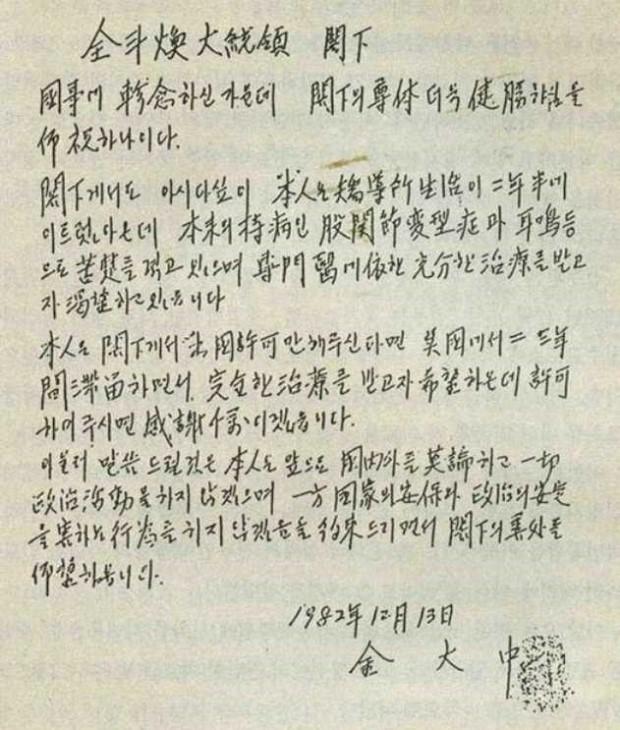 全斗煥 大統領 閣下
國事에 軫念하신 가운데 閣下의 尊体 더욱 健勝하심을
仰祝하나이다.
閣下께서도 아시다싶이 本人은 矯導所 生活이 二年半에
이르렀아온데 本來의 持病인 股關節 変型症과 耳鳴等
으로 苦楚를 겪고 있으며 專門醫에 依한 充分한 治療를 받고
자 渴望하고 있읍니다
本人은 閣下께서 出國許可만 해주신다면 美國에서 二 三年
間 滯留하면서 完全한 治療를 받고자 希望하는데 許可
하여 주시면 感謝千萬이겠읍니다.
아울러 말씀 드릴것은 本人은 앞으로 國內外를 莫論하고 一切
政治活動을 하지 않겠으며 一方 國家의 安保와 政治의 安定
을 害하는 行爲를 하지 않겠음을 約束드리면서 閣下의 善処를
仰望하옵니다.
1982年 12月 13日
金 大 中